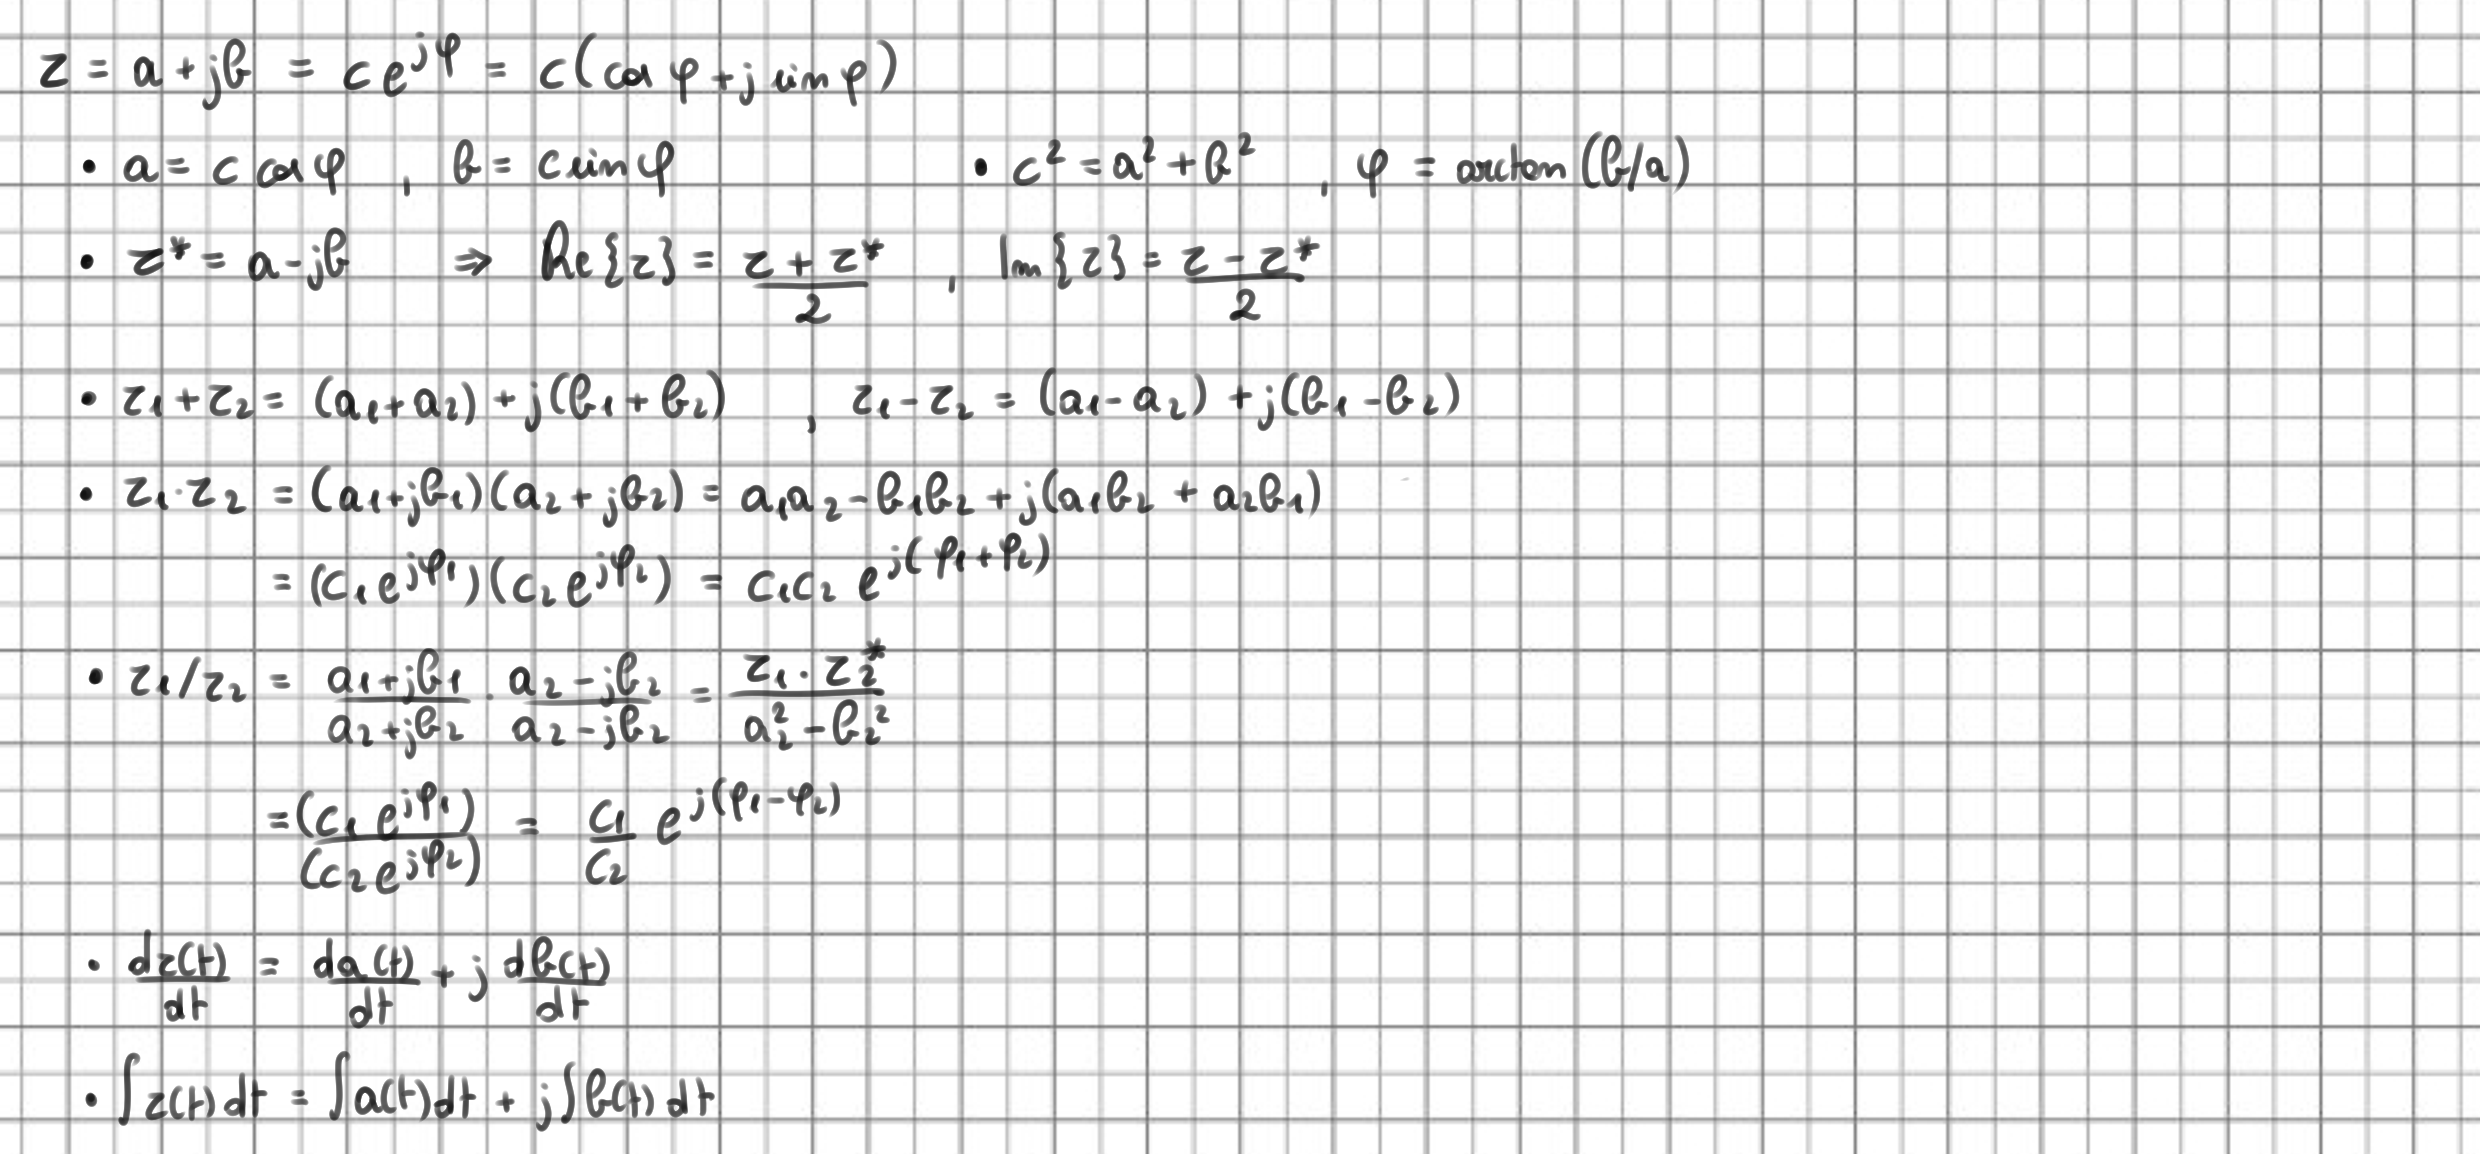 z = a + jb = c e^{jφ} = c(cos φ + j sin φ)
• a = c cos φ , b = c sin φ • c² = a² + b² , φ = arctan (b/a)
• z* = a - jb ⇒ Re{z} = (z + z*)/2 , Im{z} = (z - z*)/2
• z₁ + z₂ = (a₁ + a₂) + j(b₁ + b₂) , z₁ - z₂ = (a₁ - a₂) + j(b₁ - b₂)
• z₁ · z₂ = (a₁ + jb₁)(a₂ + jb₂) = a₁a₂ - b₁b₂ + j(a₁b₂ + a₂b₁)
= (c₁ e^{jφ₁})(c₂ e^{jφ₂}) = c₁c₂ e^{j(φ₁+φ₂)}
• z₁/z₂ = (a₁ + jb₁)/(a₂ + jb₂) · (a₂ - jb₂)/(a₂ - jb₂) = (z₁ · z₂*)/(a₂² - b₂²)
= (c₁ e^{jφ₁})/(c₂ e^{jφ₂}) = c₁/c₂ e^{j(φ₁-φ₂)}
• dz(t)/dt = da(t)/dt + j db(t)/dt
• ∫z(t) dt = ∫a(t) dt + j∫b(t) dt